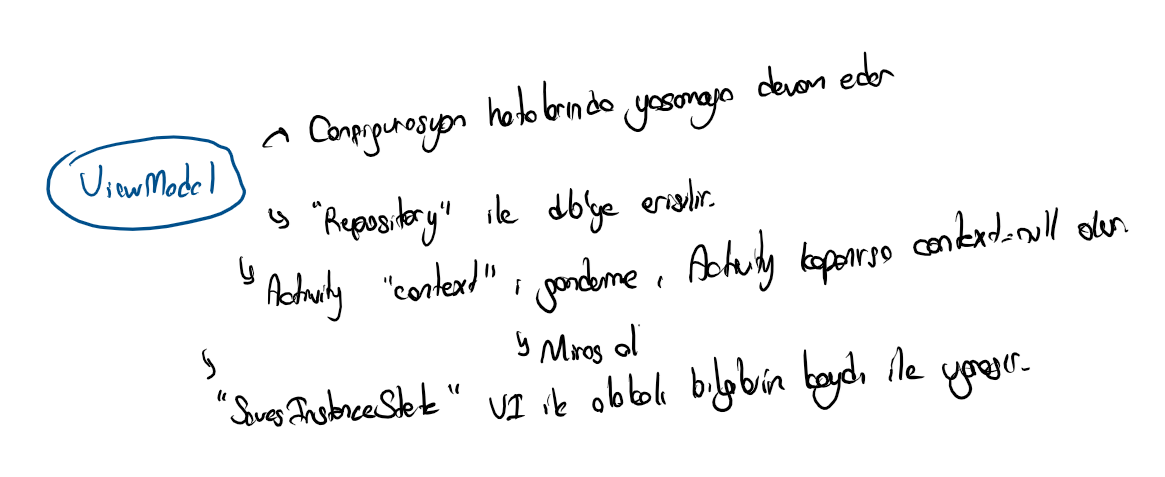 ViewModel
Configurasyon hatalarında yaşamaya devam eder
"Repository" ile db'ye erişilir.
Activity "context" i gönderme, Activity kapanırsa context=null olur.
Miras al
"SavesInstanceState" UI ile alakalı bilgilerin kaydı ile